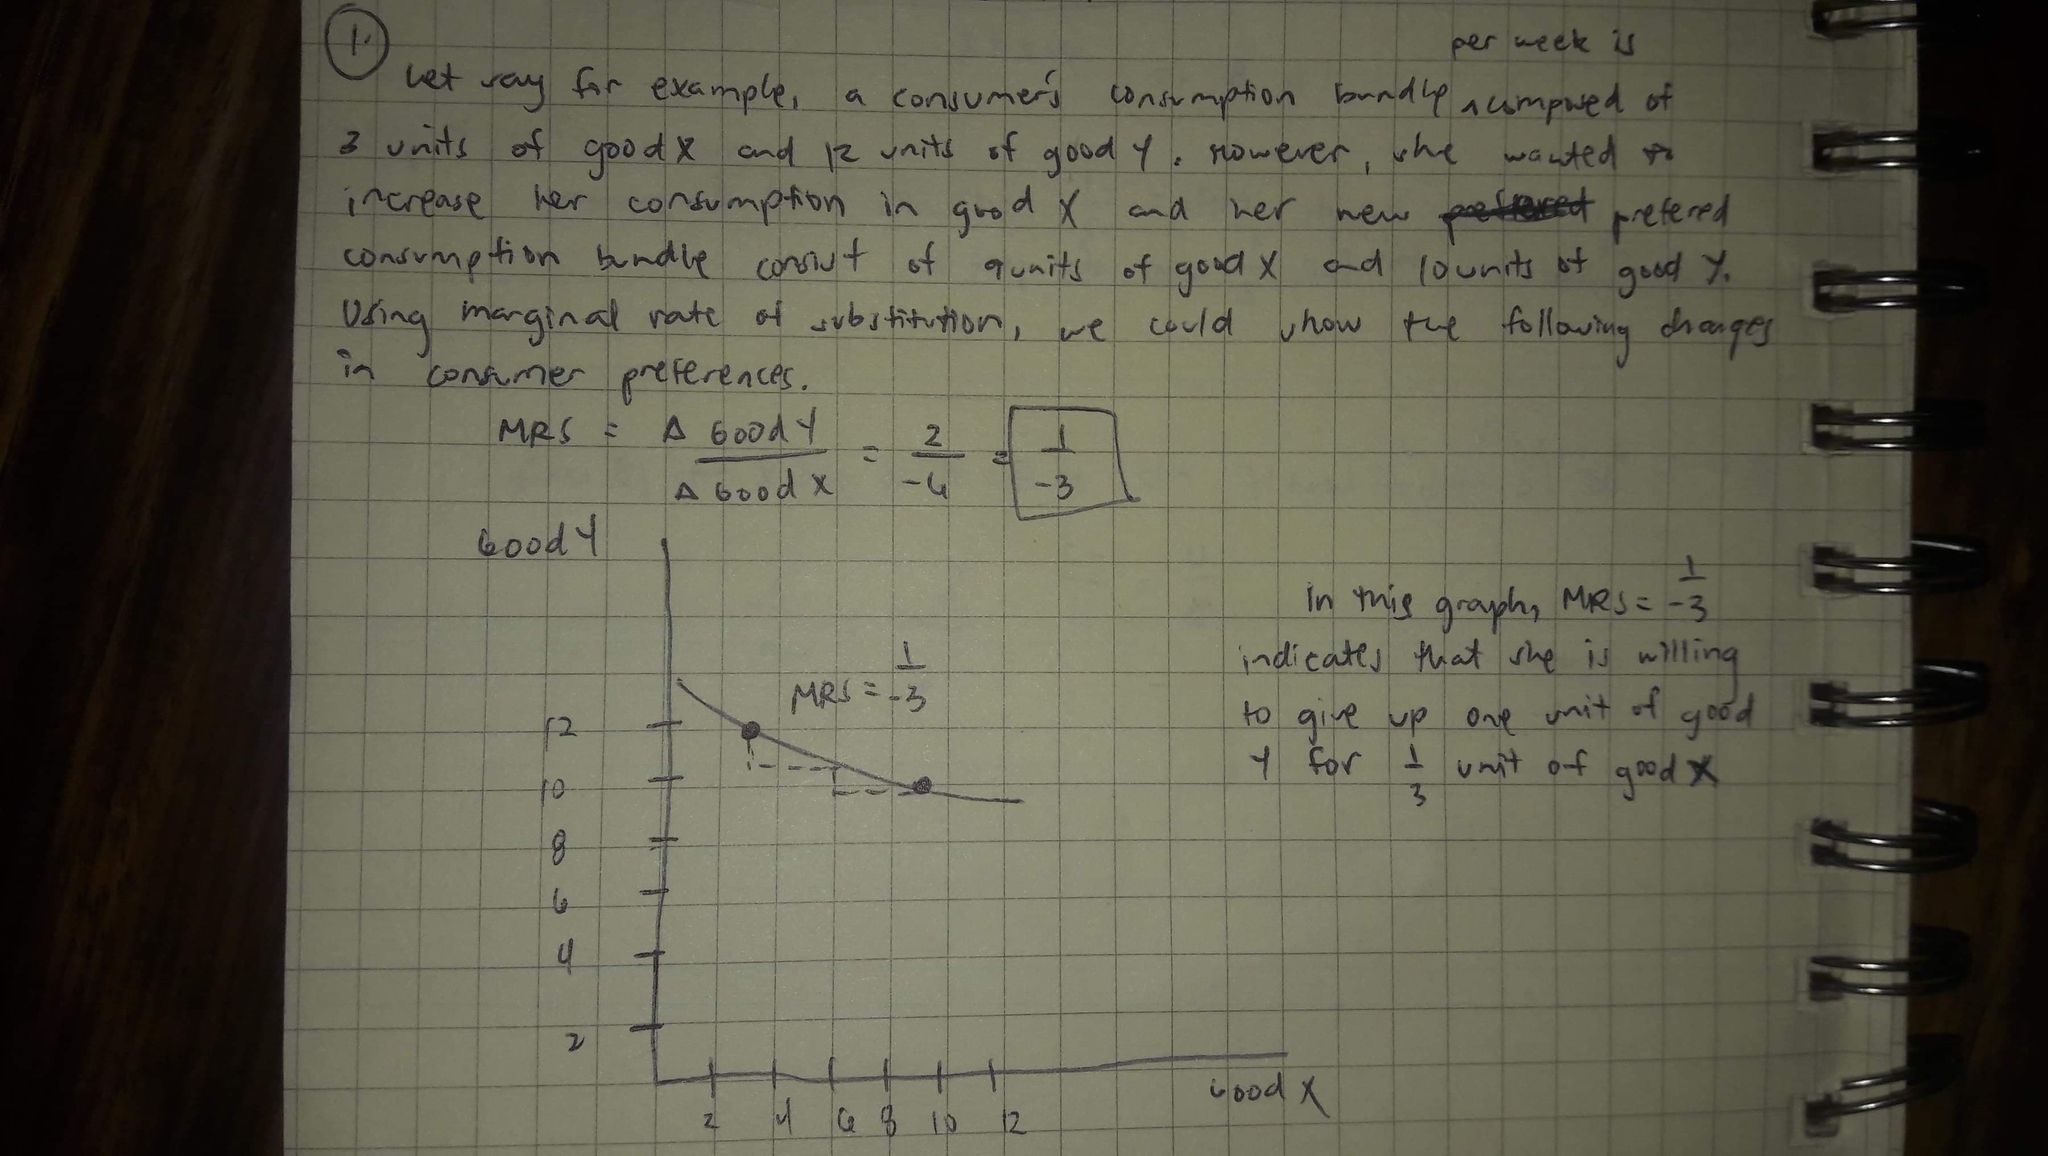 1.
per week is
Let say for example, a consumer's consumption bundle ^ composed of
3 units of good X and 12 units of good Y. However, she wanted to
increase her consumption in good X and her new prefered
consumption bundle consist of 9 units of good X and 10 units of good Y.
Using marginal rate of substitution, we could show the following changes
in consumer preferences.
MRS = Δ Good Y / Δ Good X = 2 / -6 = 1 / -3
Good Y
In this graph, MRS = 1 / -3
indicates that she is willing
to give up one unit of good
Y for 1/3 unit of good X
MRS = 1 / -3
12
10
8
6
4
2
2 4 6 8 10 12
Good X